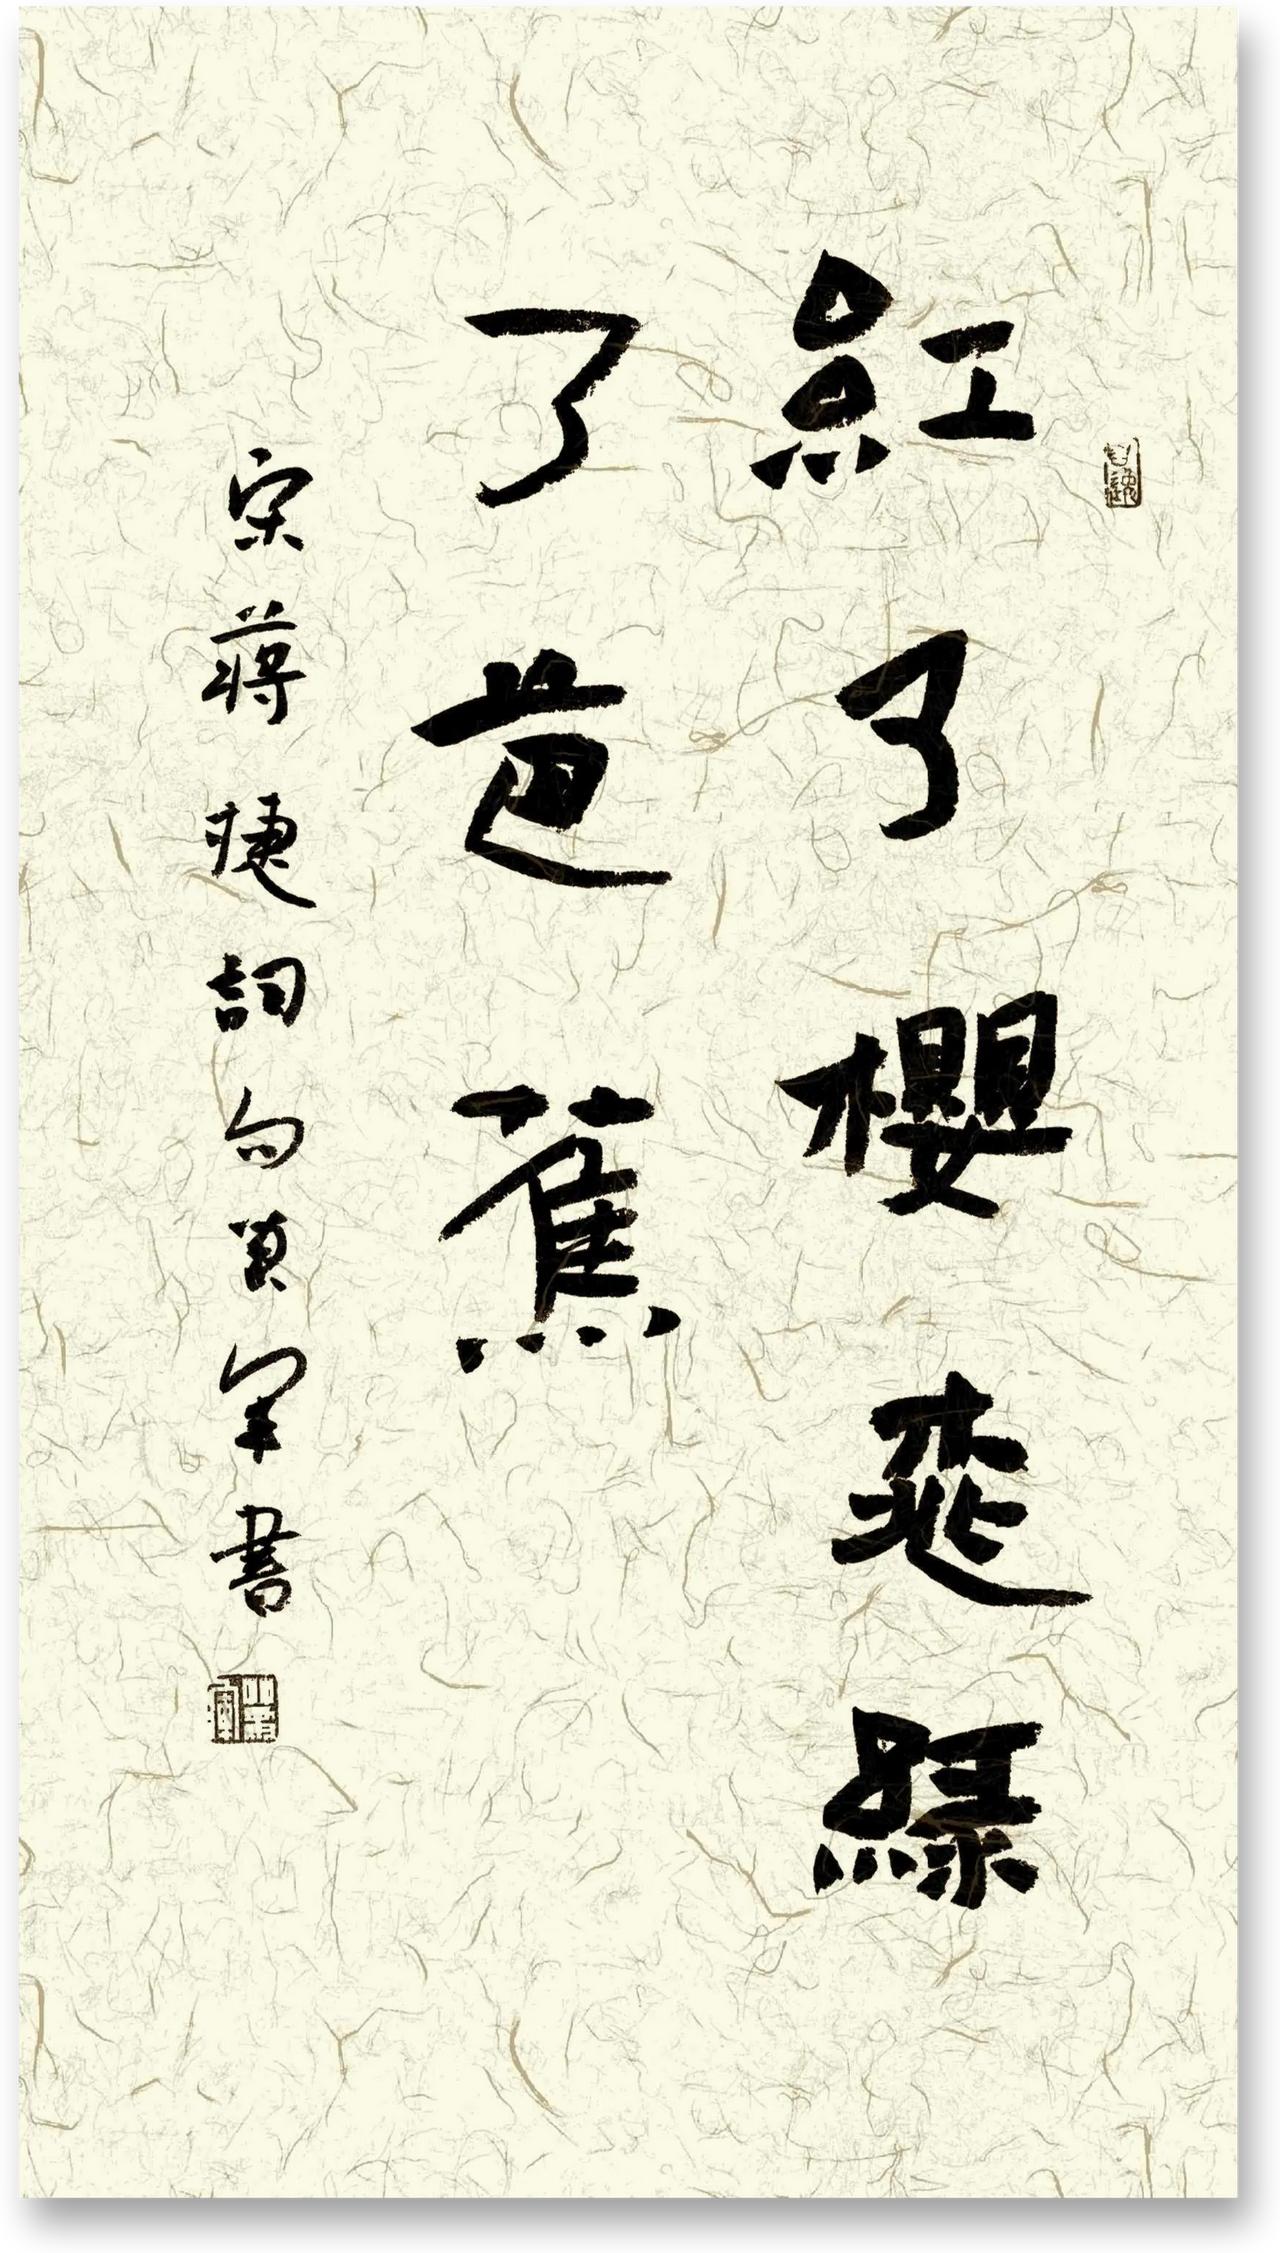 紅了櫻桃緑
了芭蕉
宋蔣捷詞句黃軍書